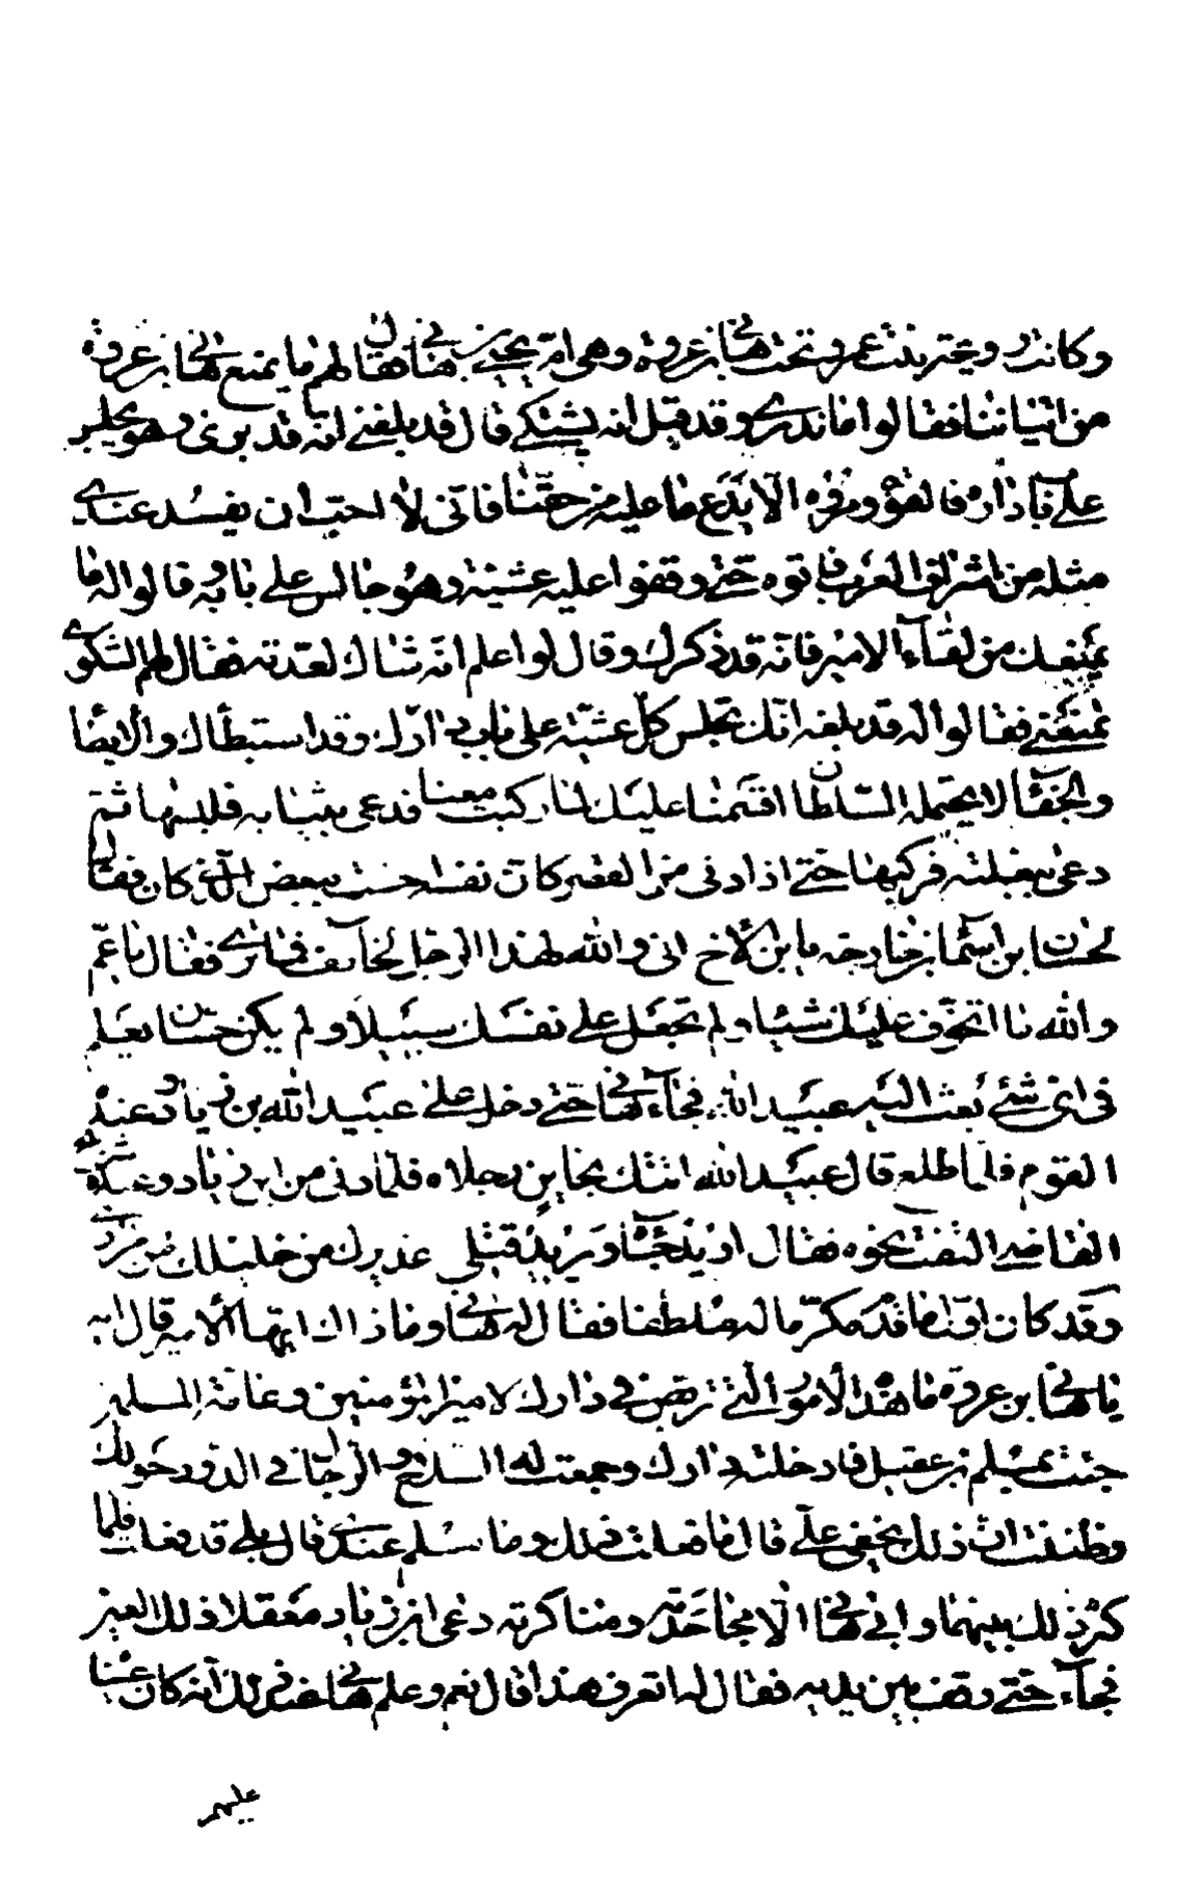 وكانت رويحة بنت عمرو تحت هاني بن عروة وهي ام يحيى بن هاني فقال لهم ما يمنع هاني بن عروة
من اتياننا فقالوا ما ندري وقد قيل انه يشتكي قال قد بلغني انه قد برئ وهو يجلس
على باب داره فالقوه ومروه الا يدع ما عليه من حقنا فاني لا احب ان يفسد عندي
مثله من اشراف العرب فاتوه حتى وقفوا عليه عشية وهو جالس على بابه وقالوا له ما
يمنعك من لقاء الامير فانه قد ذكرك وقال لو اعلم انه شاك لعدته فقال لهم الشكوى
تمنعني فقالوا له قد بلغه انك تجلس كل عشية على باب دارك وقد استبطأك والابطا
والجفاء لا يحتمله السلطان اقسمنا عليك لما ركبت معنا فدعى بثيابه فلبسها ثم
دعى ببغلته فركبها حتى اذا دنى من القصر كان نفسه احست ببعض الذي كان فقال
لحسان ابن اسماء بن خارجة يا ابن الاخ اني والله لهذا الرجل لخائف فما ترى فقال يا عم
والله ما اتخوف عليك شيئا ولم تجعل على نفسك سبيلا ولم يكن حسان يعلم
في اي شئ بعث اليه عبيد الله فجاء هاني حتى دخل على عبيد الله بن زياد وعنده
القوم فلما طلع قال عبيد الله اتتك بخاين رجلاه فلما دنى من ابن زياد وعنده شريح
القاضي التفت نحوه فقال اريد حباءه ويريد قتلي عذيرك من خليلك من مراد
وقد كان اول ما قدم مكرما له ملطفا فقال له هاني وما ذاك ايها الامير قال ايه
يا هاني بن عروة ما هذه الامور التي تربص في دارك لامير المؤمنين وعامة المسلمين
جئت بمسلم بن عقيل فادخلته دارك وجمعت له السلاح والرجال في الدور حولك
وظننت ان ذلك يخفى علي قال ما فعلت ذلك وما مسلم عندي قال بلى قد فعلت فلما
كثر ذلك بينهما وابى هاني الا مجاحدته ومناكرته دعى ابن زياد معقلا ذلك العين
فجاء حتى وقف بين يديه فقال له اتعرف هذا قال نعم وعلم هاني عند ذلك انه كان عينا
عليهم